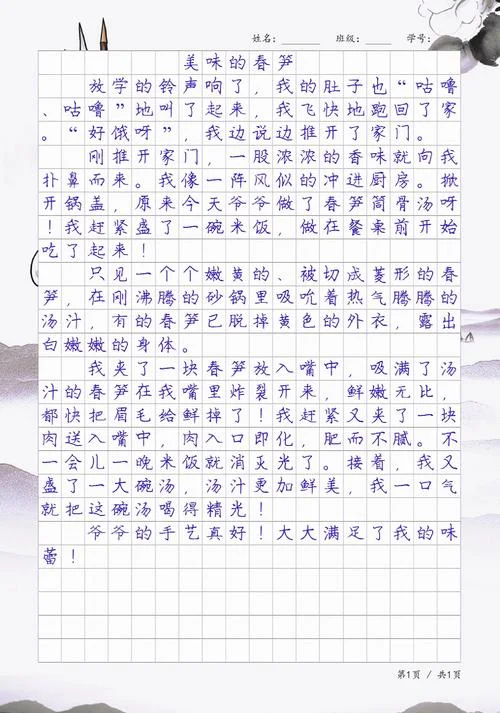 姓名：______ 班级：____ 学号：
美味的春笋
放学的铃声响了，我的肚子也“咕噜
、咕噜”地叫了起来，我飞快地跑回了家
。“好饿呀”，我边说边推开了家门。
刚推开家门，一股浓浓的香味就向我
扑鼻而来。我像一阵风似的冲进厨房。掀
开锅盖，原来今天爷爷做了春笋筒骨汤呀
！我赶紧盛了一碗米饭，做在餐桌前开始
吃了起来！
只见一个个嫩黄的、被切成菱形的春
笋，在刚沸腾的砂锅里吸吮着热气腾腾的
汤汁，有的春笋已脱掉黄色的外衣，露出
白嫩嫩的身体。
我夹了一块春笋放入嘴中，吸满了汤
汁的春笋在我嘴里炸裂开来，鲜嫩无比，
都快把眉毛给鲜掉了！我赶紧又夹了一块
肉送入嘴中，肉入口即化，肥而不腻。不
一会儿一晚米饭就消灭光了。接着，我又
盛了一大碗汤，汤汁更加鲜美，我一口气
就把这碗汤喝得精光！
爷爷的手艺真好！大大满足了我的味
蕾！
第1页 / 共1页